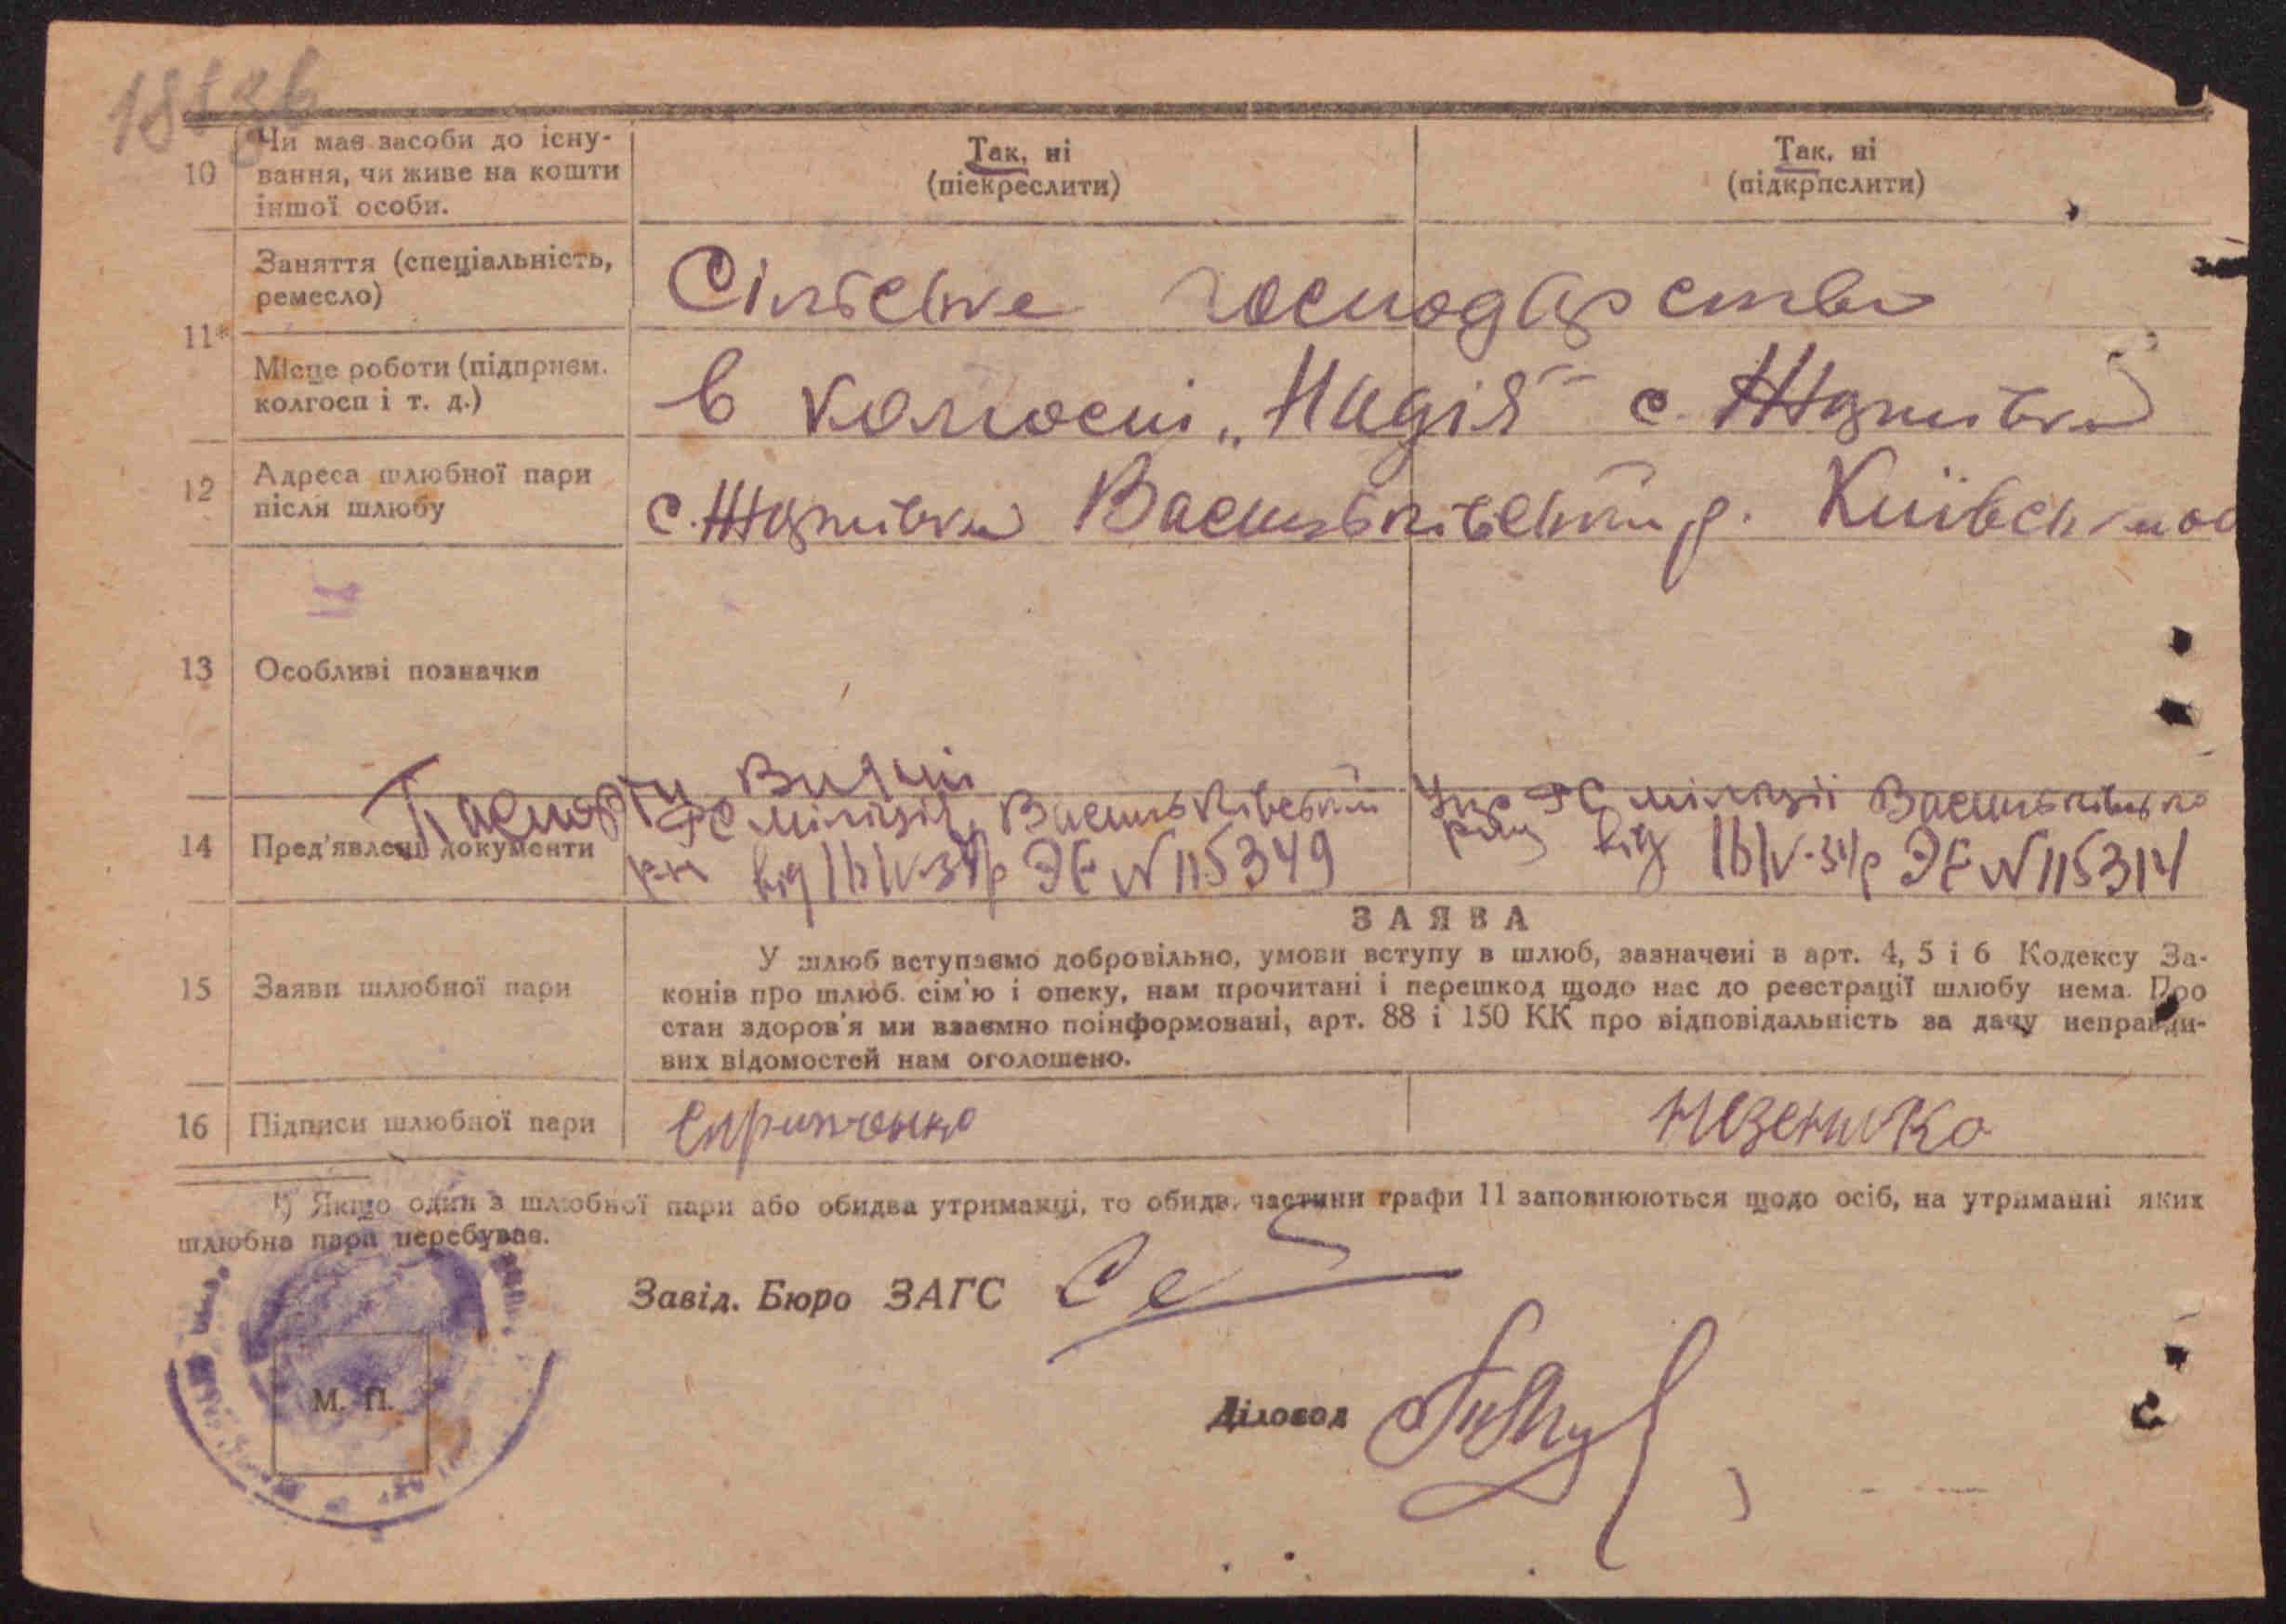 10 Чи має засоби до існу-
вання, чи живе на кошти
іншої особи.
Так, ні
(піекреслити)
Так, ні
(підкрпслити)
11*
Заняття (спеціальність,
ремесло)
Сільське господарство
Місце роботи (підприєм.
колгосп і т. д.)
в колгоспі „Надія" с. Ждянівка
12 Адреса шлюбної пари
після шлюбу
с. Ждянівка Васильківський р. Київської
13 Особливі позначки
14 Пред'явлені документи
Паспорти Видані
РС міліції Васильківський
р-н від 16/IV-34р ЭЕ № 115349
РС міліції Васильківсько
від 16/IV-34р ЭЕ № 115314
15 Заяви шлюбної пари
ЗАЯВА
У шлюб вступаємо добровільно, умови вступу в шлюб, зазначені в арт. 4, 5 і 6 Кодексу За-
конів про шлюб. сім'ю і опеку, нам прочитані і перешкод щодо нас до реєстрації шлюбу нема. Про
стан здоров'я ми взаємно поінформовані, арт. 88 і 150 КК про відповідальність за дачу неправди-
вих відомостей нам оголошено.
16 Підписи шлюбної пари
Скрипченко
Незенико
¹) Якщо один з шлюбної пари або обидва утриманці, то обидв. частини графи 11 заповнюються щодо осіб, на утриманні яких
шлюбна пара перебуває.
Завід. Бюро ЗАГС
М. П.
Діловод